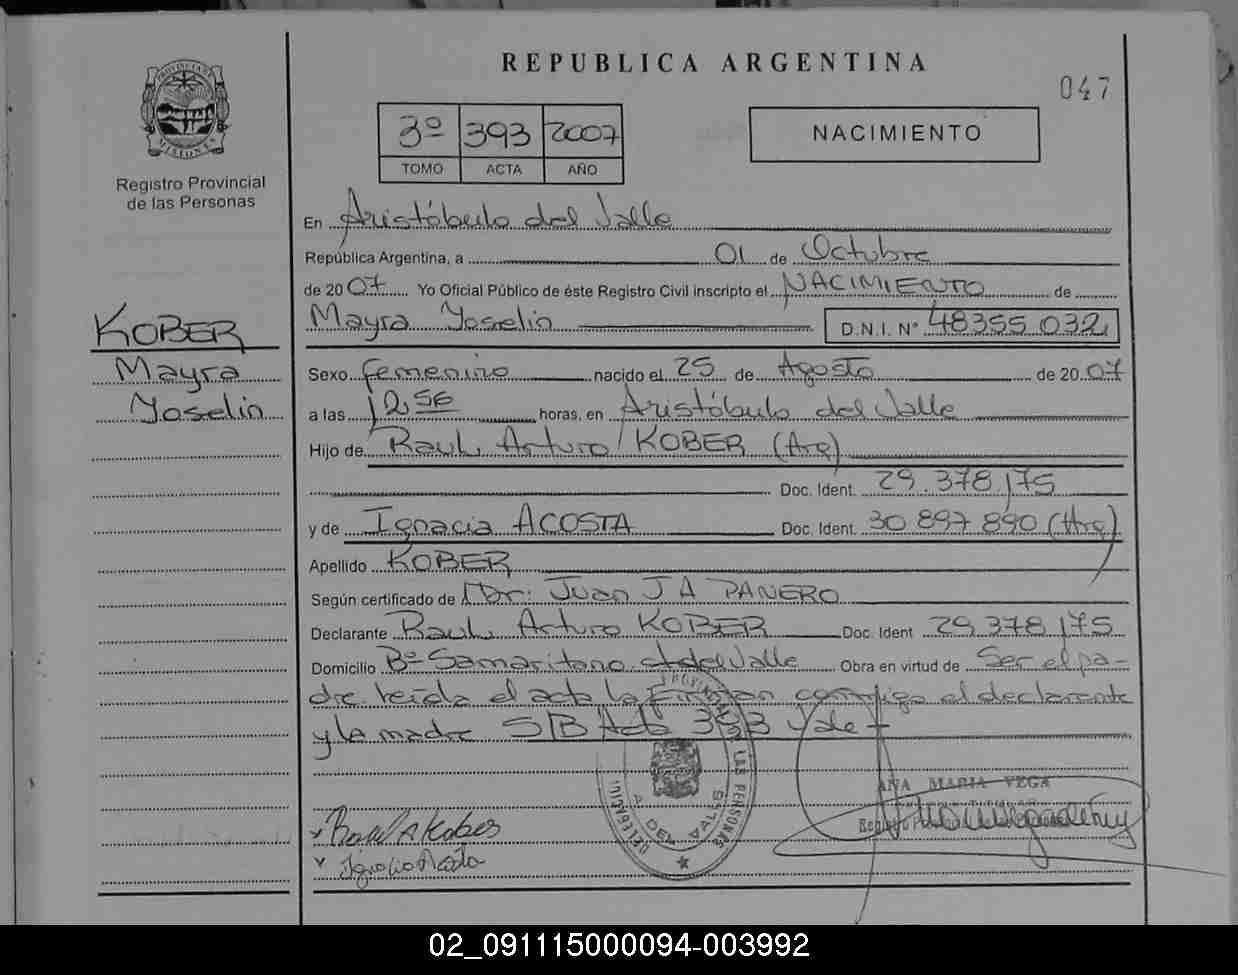 REPUBLICA ARGENTINA
047
PROVINCIA DE MISIONES
Registro Provincial
de las Personas
3º 393 2007
TOMO ACTA AÑO
NACIMIENTO
En Aristóbulo del Valle
República Argentina, a 01 de Octubre
de 2007 Yo Oficial Público de éste Registro Civil inscripto el NACIMIENTO de
Mayra Yoselin D.N.I. N° 48355 032
KOBER
Mayra
Yoselin
Sexo femenino nacido el 25 de Agosto de 2007
a las 12 56 horas, en Aristóbulo del Valle
Hijo de Raul Arturo KOBER (Arg)
Doc. Ident. 29.378,175
y de Ignacia ACOSTA Doc. Ident. 30 897 890 (Arg)
Apellido KOBER
Según certificado de Dr: Juan J A PANERO
Declarante Raul Arturo KOBER Doc. Ident 29 378 175
Domicilio Bº Samaritano A del Valle Obra en virtud de Ser el pa-
dre leída el acta la Firman conmigo el declarante
y la madre S/B Acta 393 Vale
A. DEL VALLE
ANA MARIA VEGA
Raul A Kober
Ignacia Acosta
02_091115000094-003992